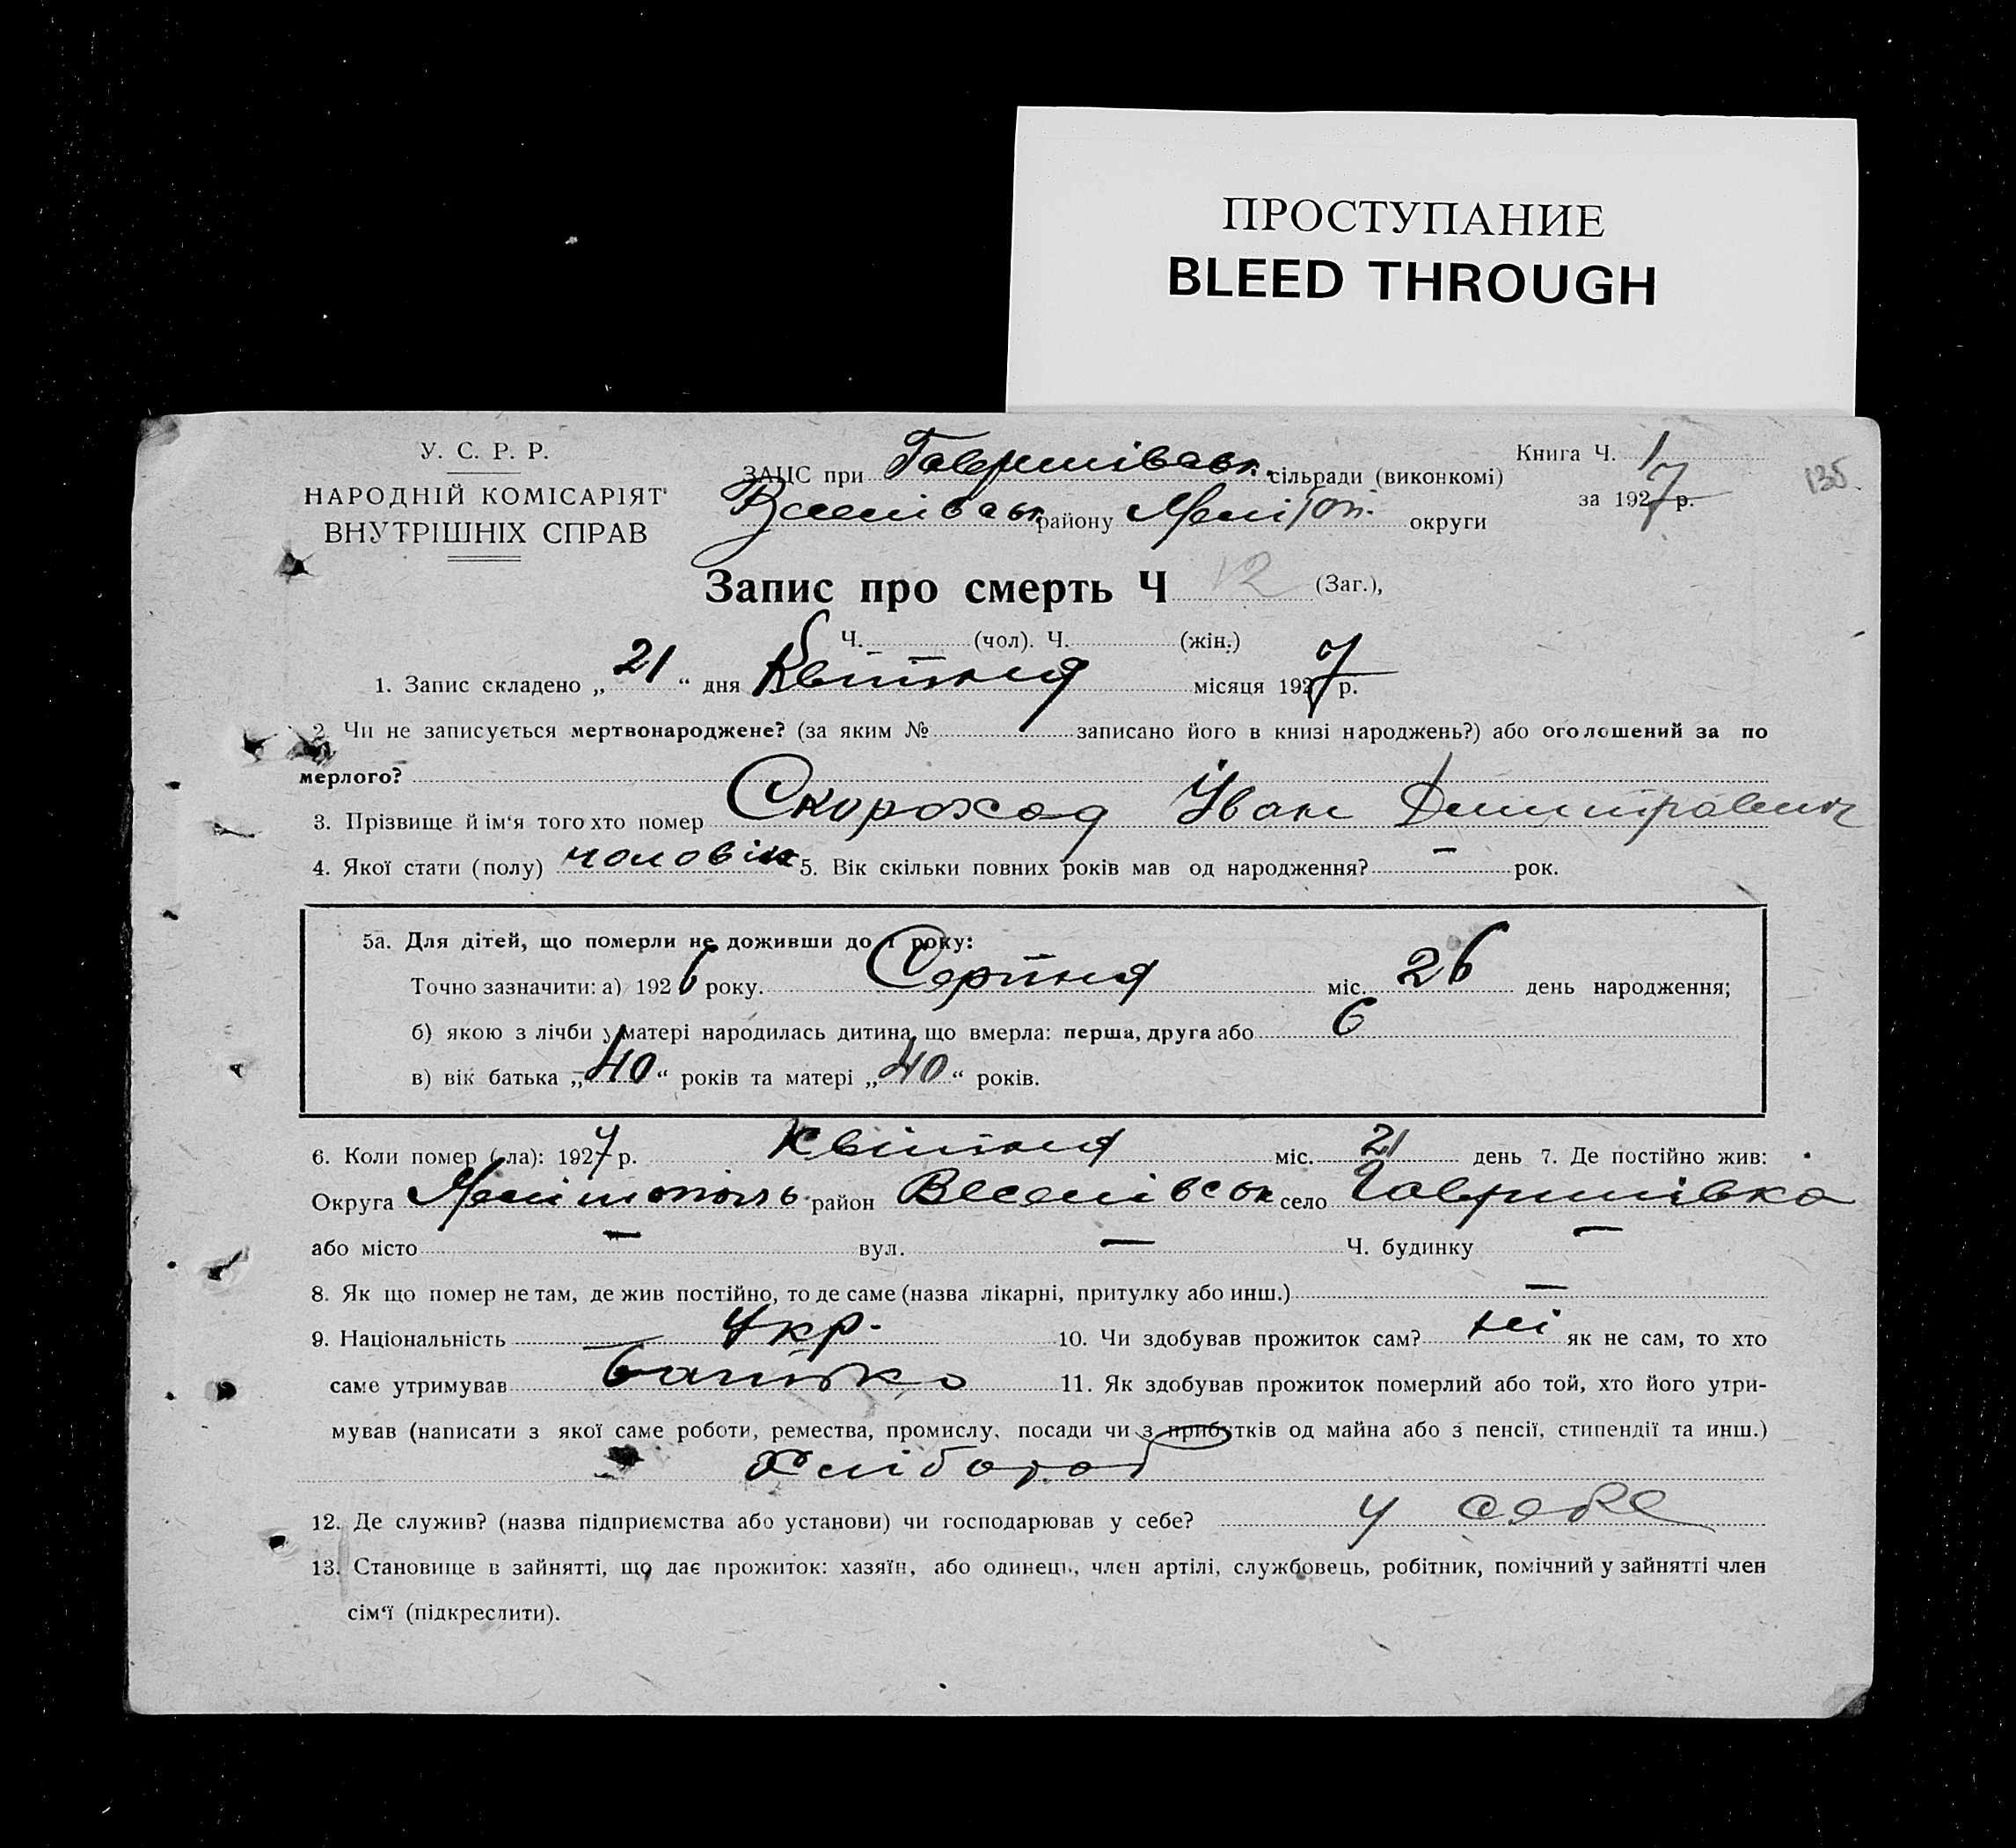 ПРОСТУПАНИЕ
BLEED THROUGH
У. С. Р. Р.
НАРОДНІЙ КОМІСАРІЯТ
ВНУТРІШНІХ СПРАВ
ЗАЦС при Гаврилівськ. сільради (виконкомі)
Веселівськ району Мелітоп. округи
Книга Ч. 1
за 1927 р.
135
Запис про смерть Ч 12 (Заг.),
Ч. (чол). Ч. (жін.)
1. Запис складено „ 21 “ дня Квітня місяця 1927 р.
2. Чи не записується мертвонароджене? (за яким № записано його в книзі народжень?) або оголошений за по
мерлого?
3. Прізвище й ім‘я того хто помер Скороход Іван Дмитрович
4. Якої стати (полу) чоловік 5. Вік скільки повних років мав од народження? – рок.
5а. Для дітей, що померли не доживши до 1 року:
Точно зазначити: а) 1926 року. Серпня міс. 26 день народження;
б) якою з лічби у матері народилась дитина, що вмерла: перша, друга або 6
в) вік батька „ 40 “ років та матері „ 40 “ років.
6. Коли помер ( ла): 1927 р. Квітня міс. 21 день 7. Де постійно жив:
Округа Мелітополь район Веселівськ село Гаврилівка
або місто – вул. – Ч. будинку –
8. Як що помер не там, де жив постійно, то де саме (назва лікарні, притулку або инш.) –
9. Національність Укр. 10. Чи здобував прожиток сам? ні як не сам, то хто
саме утримував батько 11. Як здобував прожиток померлий або той, хто його утри-
мував (написати з якої саме роботи, ремества, промислу, посади чи з прибутків од майна або з пенсії, стипендії та инш.)
Хлібороб
12. Де служив? (назва підприємства або установи) чи господарював у себе? у себе
13. Становище в зайнятті, що дає прожиток: хазяїн, або одинець, член артілі, службовець, робітник, помічний у зайнятті член
сім‘ї (підкреслити).